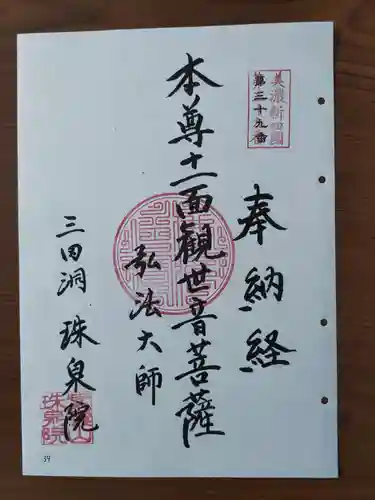 美濃新四国
第三十九番
奉納経
本尊十一面観世音菩薩
弘法大師
三田洞 珠泉院
珠泉院
39